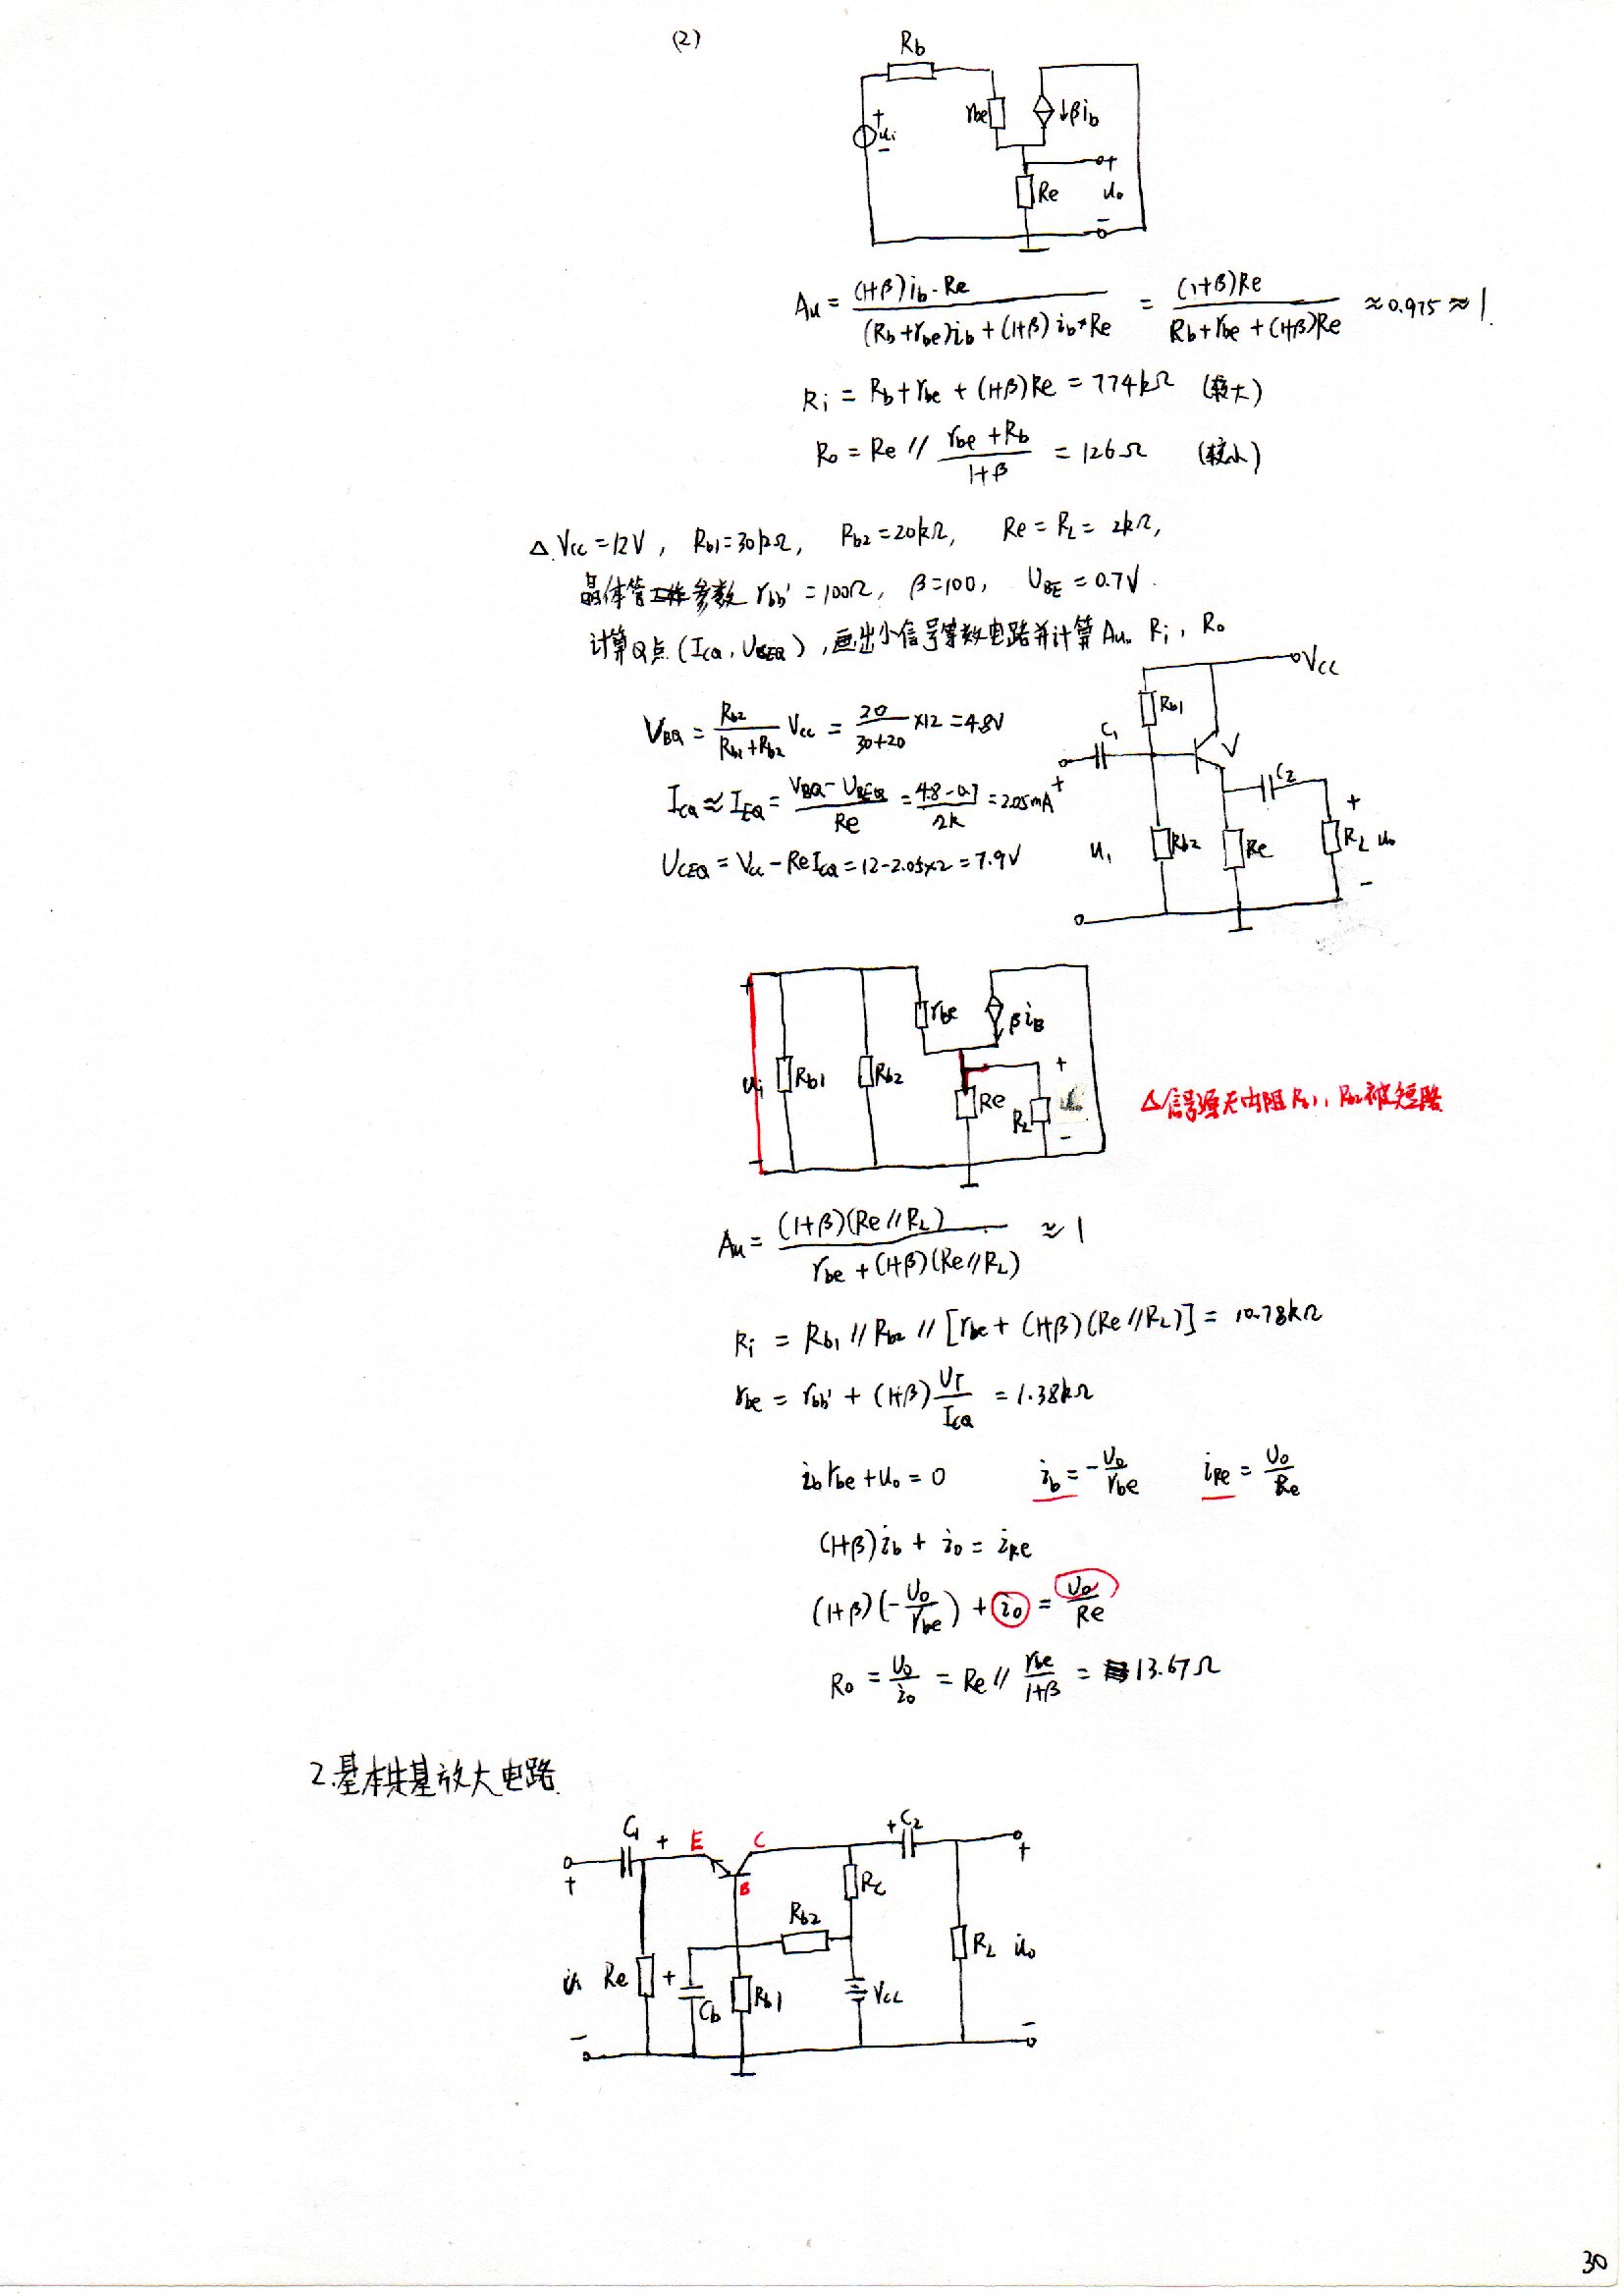 (2)
Rb
+
ui
-
rbe
↓βib
+
Re
uo
-
Au = (1+β)ib·Re / (Rb+rbe)ib+(1+β)ib*Re = (1+β)Re / Rb+rbe+(1+β)Re ≈0.975≈1.
Ri = Rb+rbe+(1+β)Re = 774kΩ (较大)
Ro = Re // rbe+Rb / 1+β = 126Ω (较小)
△ Vcc=12V, Rb1=30kΩ, Rb2=20kΩ, Re=RL=2kΩ,
晶体管参数 rbb'=100Ω, β=100, UBE=0.7V.
计算Q点(ICQ, UCEQ),画出小信号等效电路并计算Au. Ri, Ro
VBQ = Rb2 / Rb1+Rb2 Vcc = 20 / 30+20 ×12 = 4.8V
ICQ≈IEQ = VBQ-UBEQ / Re = 4.8-0.7 / 2k = 2.05mA
UCEQ = Vcc-ReICQ = 12-2.05×2 = 7.9V
Vcc
Rb1
C1
V
C2
+
+
u1
Rb2
Re
RL uo
-
+
ui
-
Rb1
Rb2
rbe
βiB
Re
RL
+
-
△信号源无内阻Rb1, Rb2被短路
Au = (1+β)(Re//RL) / rbe+(1+β)(Re//RL) ≈ 1
Ri = Rb1 // Rb2 // [rbe+(1+β)(Re//RL)] = 10.78kΩ
rbe = rbb'+(1+β) UT / ICQ = 1.38kΩ
ibrbe+uo=0 ib=-Uo/rbe iRe=Uo/Re
(1+β)ib+io=iRe
(1+β)(-Uo/rbe)+io=Uo/Re
Ro = Uo/io = Re // rbe/1+β = 13.67Ω
2.基本共基放大电路.
C1
+
E
C
B
+C2
+
+
Rc
Rb2
RL uo
ui Re
+
Cb
Rb1
Vcc
-
-
30